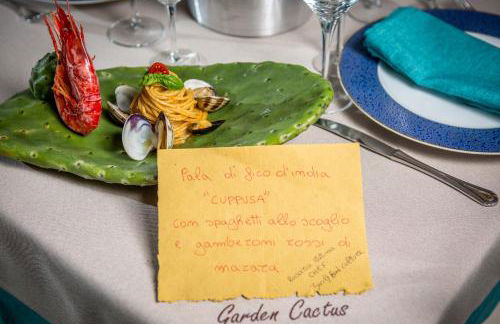 Pala di fico d'india
"CUPPUSA"
con spaghetti allo scoglio
e gamberoni rossi di
mazara
CHEF
Garden Cactus